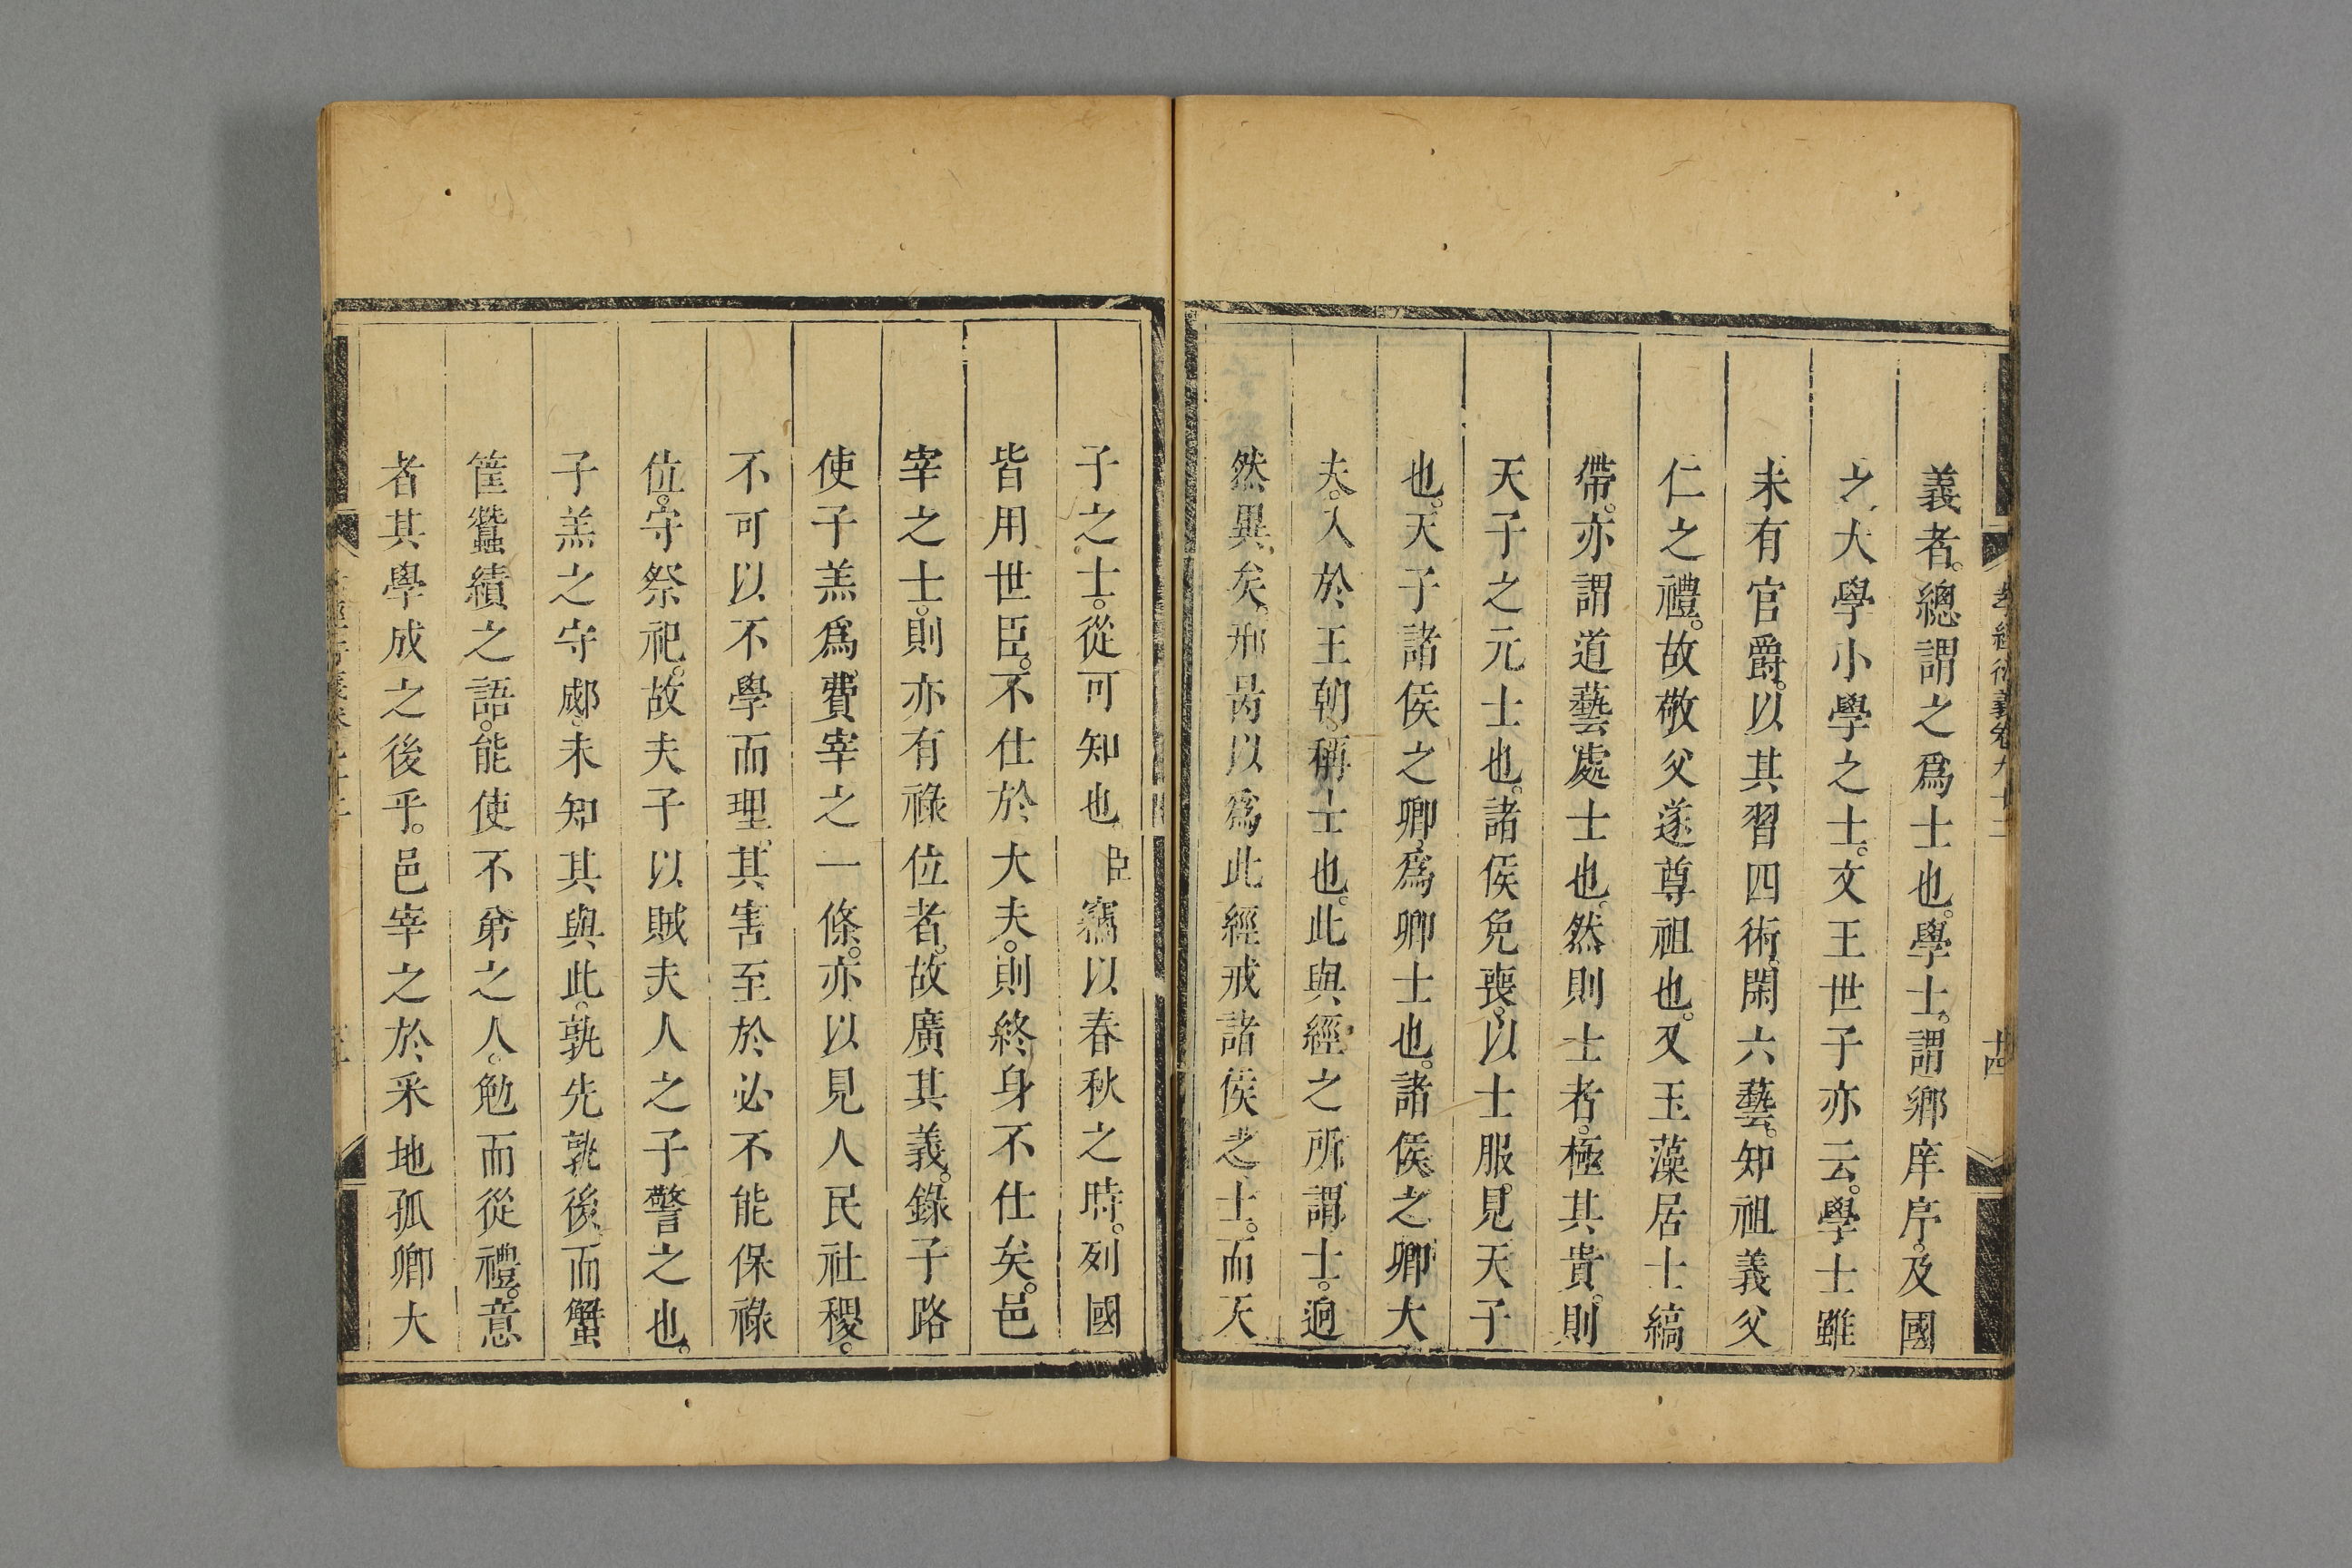 孝經衍義卷九十二
十四
義者。總謂之爲士也。學士。謂鄉庠序。及國
之大學小學之士。文王世子亦云。學士雖
未有官爵。以其習四術。閑六藝。知祖義父
仁之禮。故敬父遂尊祖也。又玉藻居士縞
帶。亦謂道藝處士也。然則士者。極其貴。則
天子之元士也。諸侯免喪。以士服。見天子
也。天子諸侯之卿。爲卿士也。諸侯之卿大
夫。入於王朝。稱士也。此與經之所謂士。迥
然異矣。邢昺以爲此經戒諸侯之士。而天
子之士。從可知也。臣竊以春秋之時。列國
皆用世臣。不仕於大夫。則終身不仕矣。邑
宰之士。則亦有祿位者。故廣其義。錄子路
使子羔爲費宰之一條。亦以見人民社稷。
不可以不學而理。其害至於必不能保祿
位。守祭祀。故夫子以賊夫人之子警之也。
子羔之守郕。未知其與此。孰先孰後。而蟹
筐蠶績之語。能使不弟之人。勉而從禮。意
者其學成之後乎。邑宰之於采地孤卿大